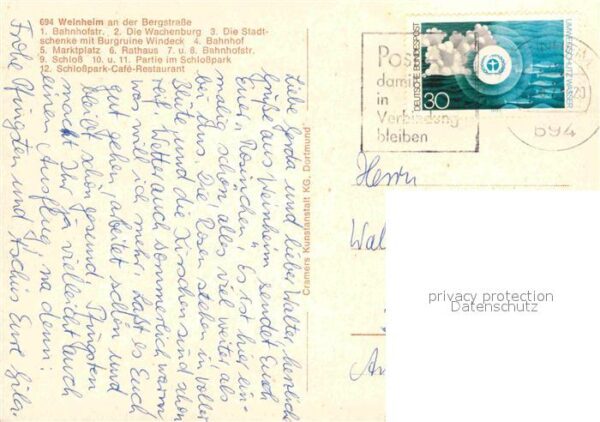 694 Weinheim an der Bergstraße
1. Bahnhofstr. 2. Die Wachenburg 3. Die Stadt-
schenke mit Burgruine Windeck 4. Bahnhof
5. Marktplatz 6. Rathaus 7. u. 8. Bahnhofstr.
9. Schloß 10. u. 11. Partie im Schloßpark
12. Schloßpark-Café-Restaurant
Liebe Gerda und lieber Walter, herzlich
Grüße aus Weinheim sendet Euch
Euer "Rosinchen". Es ist hier ein-
malig schön, alles viel weiter als
bei uns. Die Rosen stehen in voller
Blüte und die Kirschen sind schon
reif. Wetter auch sommerlich warm
was will ich mehr. Laßt es Euch
gut gehen, arbeitet schön und
bleibt schön gesund. Pfingsten
macht Ihr ja vielleicht auch
einen Ausflug, na denn:
Frohe Pfingsten und tschüs Eure
Cramers Kunstanstalt KG. Dortmund
Post
damit
in
Verbindung
bleiben
DEUTSCHE BUNDESPOST
30
UMWELTSCHUTZ WASSER
20
694
Herrn
Wal
privacy protection
Datenschutz
An